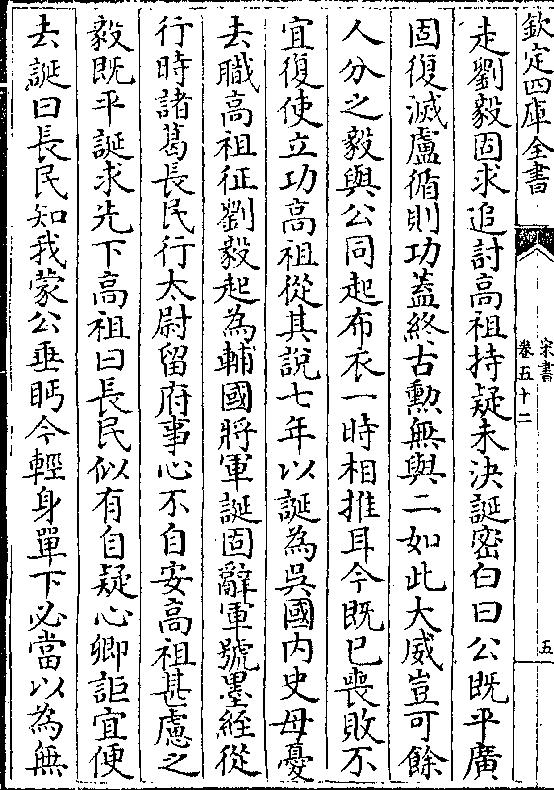 欽定四庫全書
宋書
卷五十二
五
走劉毅固求追討高祖持疑未決誕密白曰公既平廣
固復滅盧循則功蓋終古勲無與二如此大威豈可餘
人分之毅與公同起布衣一時相推耳今既已喪敗不
宜復使立功高祖從其說七年以誕為吳國內史母憂
去職高祖征劉毅起為輔國將軍誕固辭軍號墨絰從
行時諸葛長民行太尉留府事心不自安高祖甚慮之
毅既平誕求先下高祖曰長民似有自疑心卿詎宜便
去誕曰長民知我蒙公垂眄今輕身單下必當以為無